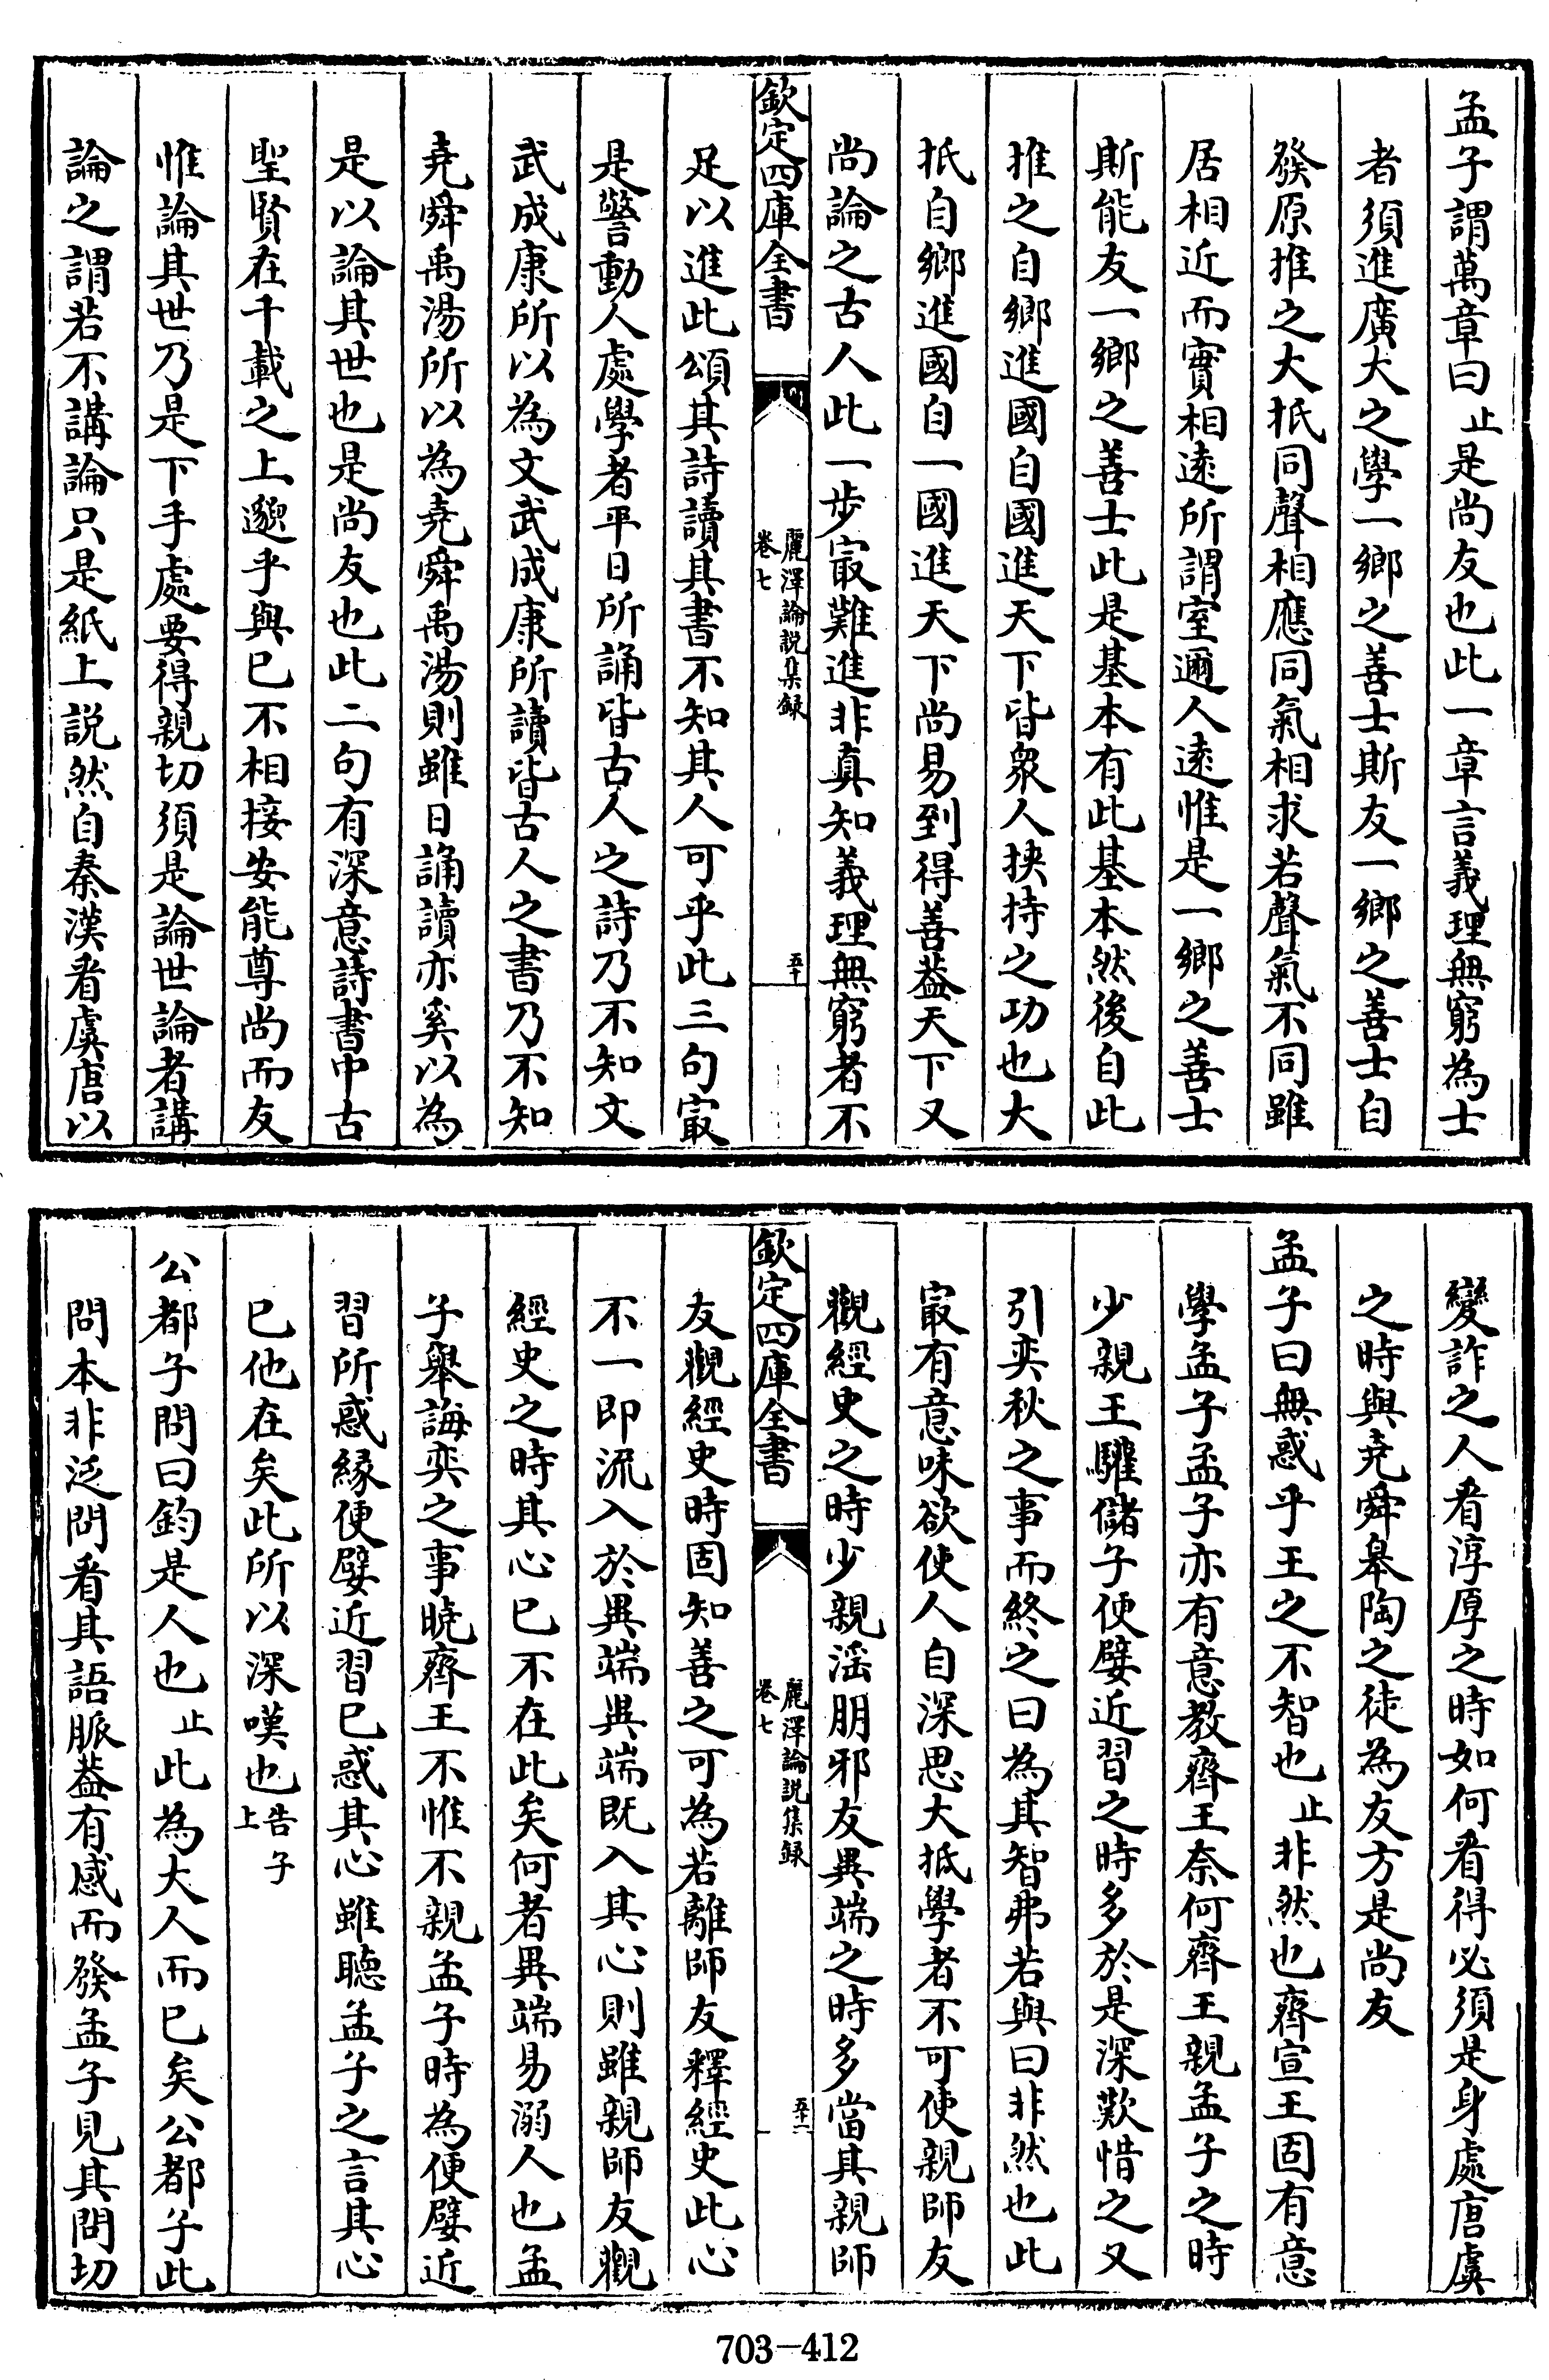 孟子謂萬章曰止是尚友也此一章言義理無窮為士
者須進廣大之學一鄉之善士斯友一鄉之善士自
發原推之大抵同聲相應同氣相求若聲氣不同雖
居相近而實相逺所謂室邇人逺惟是一鄉之善士
斯能友一鄉之善士此是基本有此基本然後自此
推之自鄉進國自國進天下皆衆人挾持之功也大
抵自鄉進國自一國進天下尚易到得善葢天下又
尚論之古人此一步㝡難進非真知義理無窮者不
欽定四庫全書
麗澤論說集録
卷七
五十
足以進此頌其詩讀其書不知其人可乎此三句㝡
是警動人處學者平日所誦皆古人之詩乃不知文
武成康所以為文武成康所讀皆古人之書乃不知
堯舜禹湯所以為堯舜禹湯則雖日誦讀亦奚以為
是以論其世也是尚友也此二句有深意詩書中古
聖賢在千載之上邈乎與已不相接安能尊尚而友
惟論其世乃是下手處要得親切須是論世論者講
論之謂若不講論只是紙上説然自秦漢看虞唐以
變詐之人看淳厚之時如何看得必須是身處唐虞
之時與堯舜臯陶之徒為友方是尚友
孟子曰無惑乎王之不智也止非然也齊宣王固有意
學孟子孟子亦有意教齊王奈何齊王親孟子之時
少親王驩儲子便嬖近習之時多於是深歎惜之又
引奕秋之事而終之曰為其智弗若與曰非然也此
㝡有意味欲使人自深思大抵學者不可使親師友
觀經史之時少親滛朋邪友異端之時多當其親師
欽定四庫全書
麗澤論說集録
卷七
五十一
友觀經史時固知善之可為若離師友釋經史此心
不一即流入於異端異端既入其心則雖親師友觀
經史之時其心已不在此矣何者異端易溺人也孟
子舉誨奕之事曉齊王不惟不親孟子時為便嬖近
習所惑縁便嬖近習已惑其心雖聽孟子之言其心
已他在矣此所以深嘆也告子上
公都子問曰鈞是人也止此為大人而已矣公都子此
問本非泛問看其語脈葢有感而發孟子見其問切
703-412